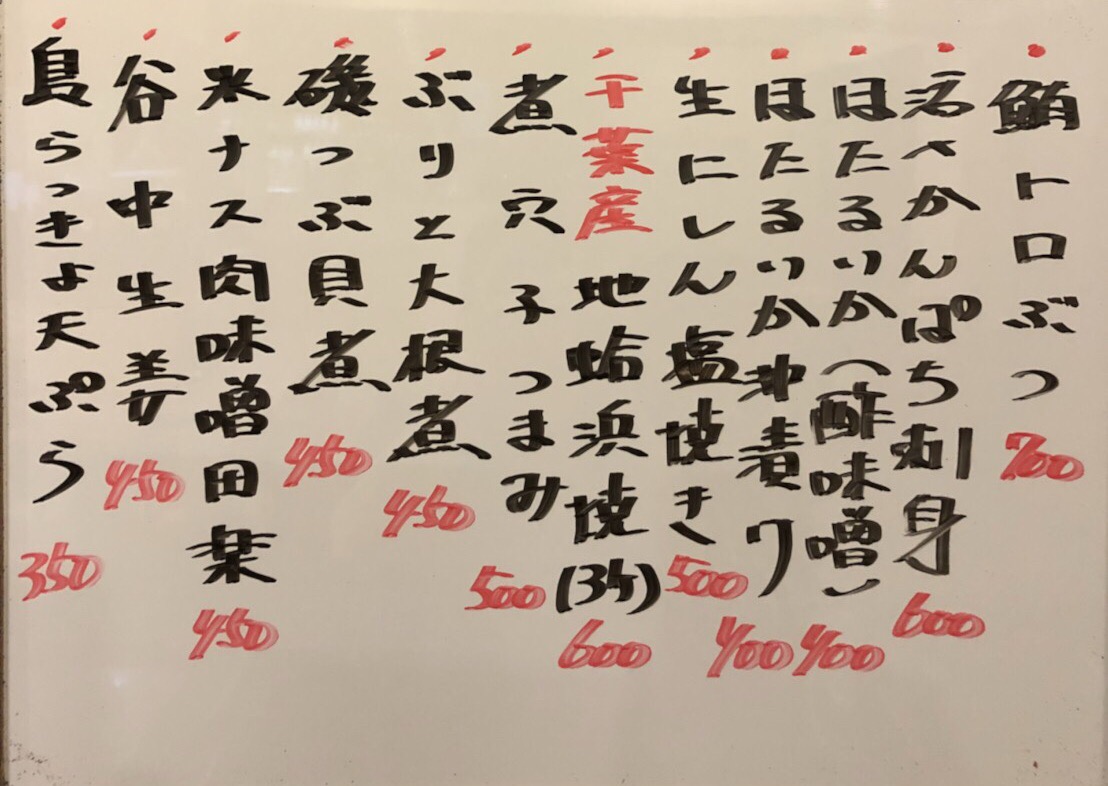 鮪トロぶつ 700
活〆かんぱち刺身 600
ほたるいか(酢味噌) 400
ほたるいか沖漬り 400
生にしん塩焼き 500
千葉産 地蛤浜焼(3ケ) 600
煮穴子つまみ 500
ぶりと大根煮 450
磯つぶ貝煮 450
水ナス肉味噌田楽 450
谷中生姜 450
島らっきょ天ぷら 350